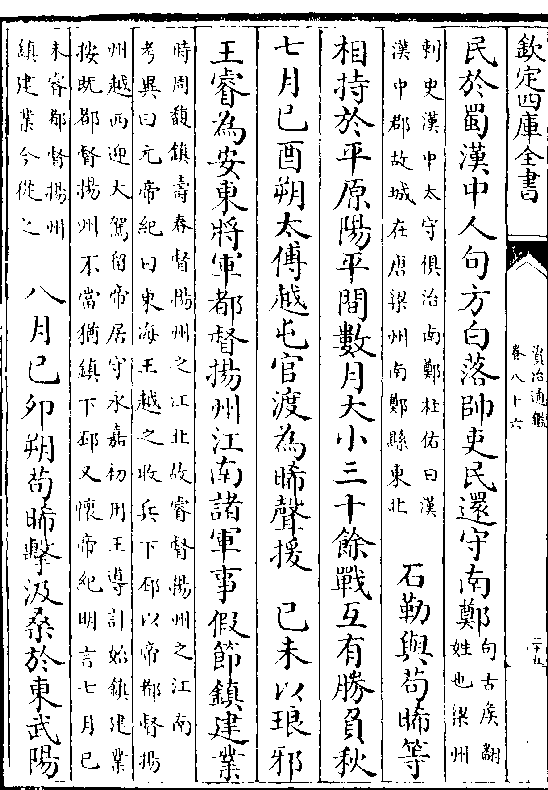 欽定四庫全書
資治通鑑
卷八十六
二十五
民於蜀漢中人句方白落帥吏民還守南鄭句古矦翻
姓也梁州
刺史漢中太守俱治南鄭杜佑曰漢
漢中郡故城在唐梁州南鄭縣東北
石勒與苟晞等
相持於平原陽平間數月大小三十餘戰互有勝負秋
七月己酉朔太傅越屯官渡為晞聲援 己未以琅邪
王睿為安東將軍都督揚州江南諸軍事假節鎮建業
時周馥鎮壽春督揚州之江北故睿督揚州之江南
考異曰元帝紀曰東海王越之收兵下邳以帝都督揚
州越西迎大駕留帝居守永嘉初用王導計始鎮建業
按既都督揚州不當猶鎮下邳又懷帝紀明言七月己
未睿都督揚州
鎮建業今從之
八月己卯朔苟晞擊汲桑於東武陽